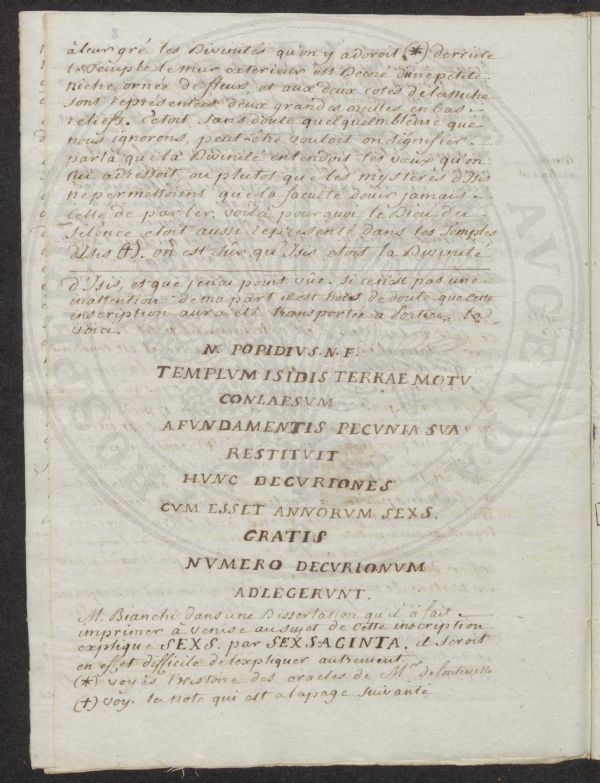 à leur gré les Divinités qu'on y adoroit (*) derriere
le Temple le mur exterieur est Decoré d'une petite
niche ornée de fleurs, et aux deux cotés de la niche
sont representées deux grandes oreilles en bas
reliefs. C'etoit sans doute quelqu'embléme que
nous ignorons, peut-être vouloit on signifier
par la que la Divinité entendoit les vœux qu'on
lui adressoit, ou plutot que les mysteres d'Isis
ne permettoient que la faculté d'ouir jamais
celle de parler. voila pourquoi le Dieu du
Silence etoit aussi representé dans les Temples
d'Isis (+). on est sûr qu'Isis etoit la Divinité
d'Isis, et que je n'ai point vûe. si ce n'est pas une
inattention de ma part il est hors de doute que cette
inscription aura été transportée a Portici. la
voici.
N. POPIDIUS. N. F.
TEMPLVM ISIDIS TERRAE MOTV
CONLAPSVM
A FVNDAMENTIS PECVNIA SVA
RESTITVIT
HVNC DECVRIONES
CVM ESSET ANNORVM SEXS.
GRATIS
NVMERO DECVRIONVM
ADLEGERVNT.
M. Bianchi dans une Dissertation qu'il à fait
imprimer à Venise au sujet de cette inscription
explique SEXS. par SEXSAGINTA. il seroit
en effet difficile de l'expliquer autrement.
(*) voyés l'histoire des oracles de Mr. de fontenelle
(+) voy. la note qui est a la page suivante